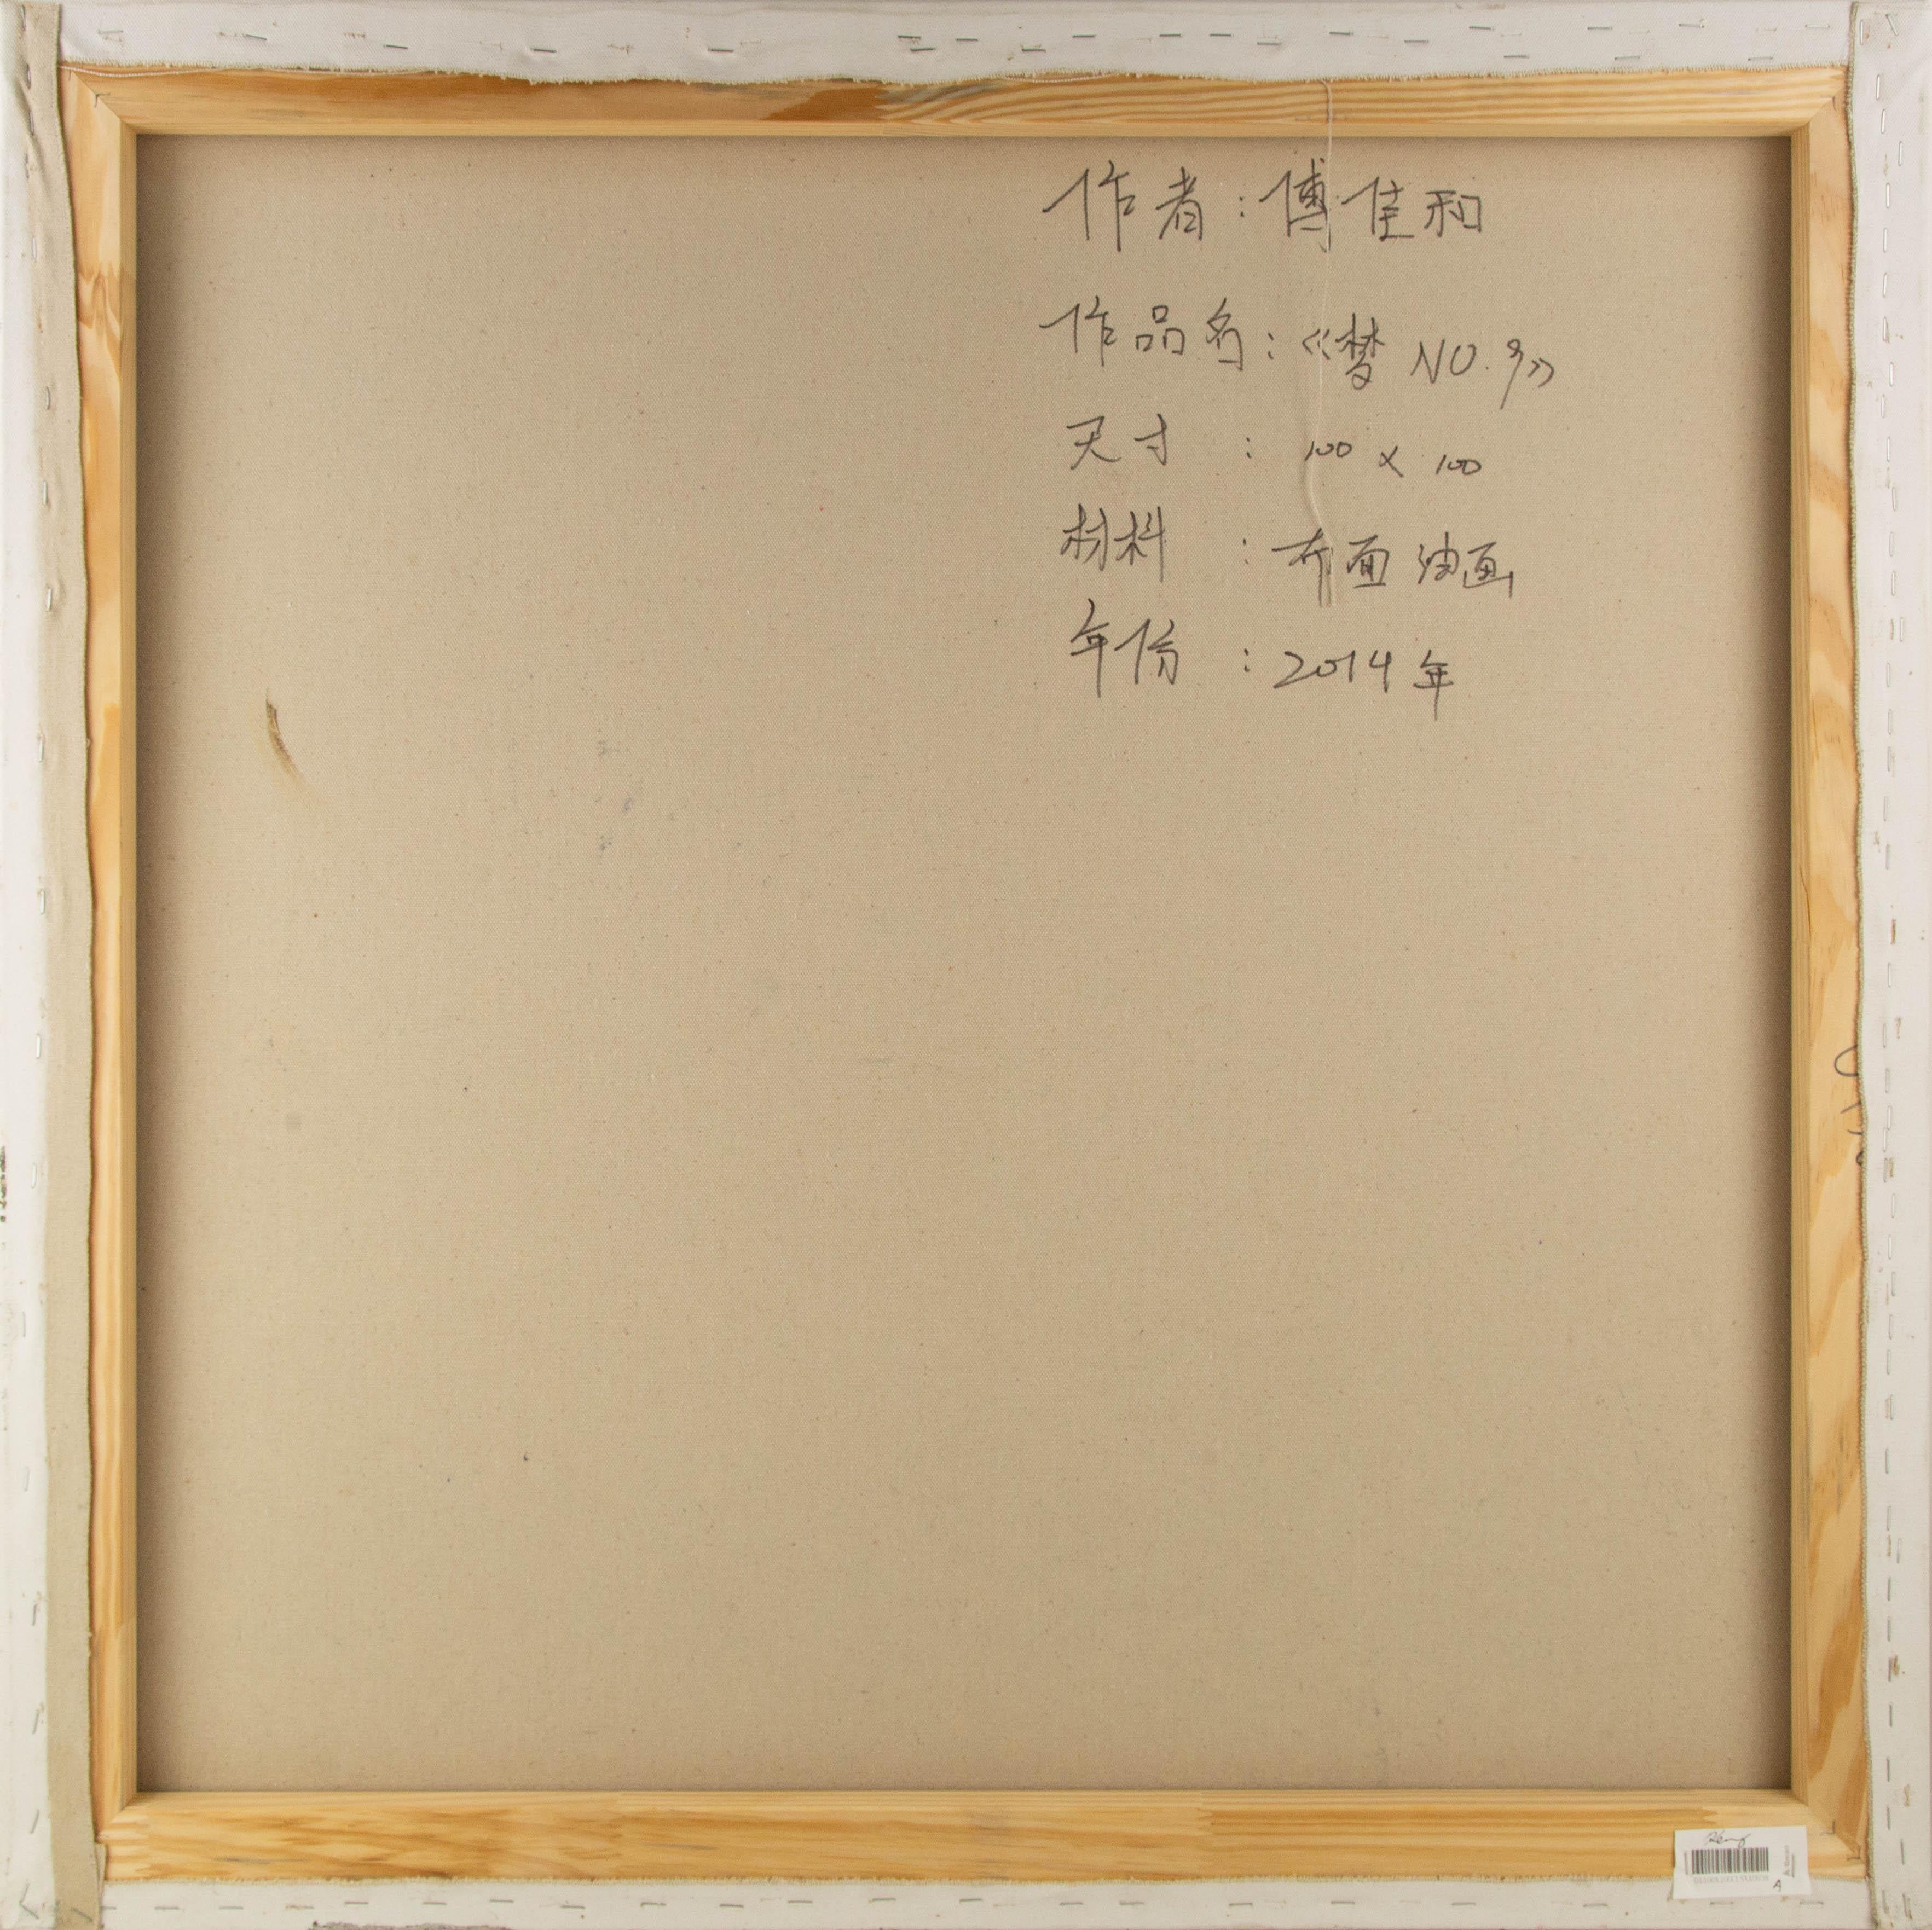 作者：傅佳和
作品名：《梦 NO.9》
尺寸：100 x 100
材料：布面油画
年份：2014年